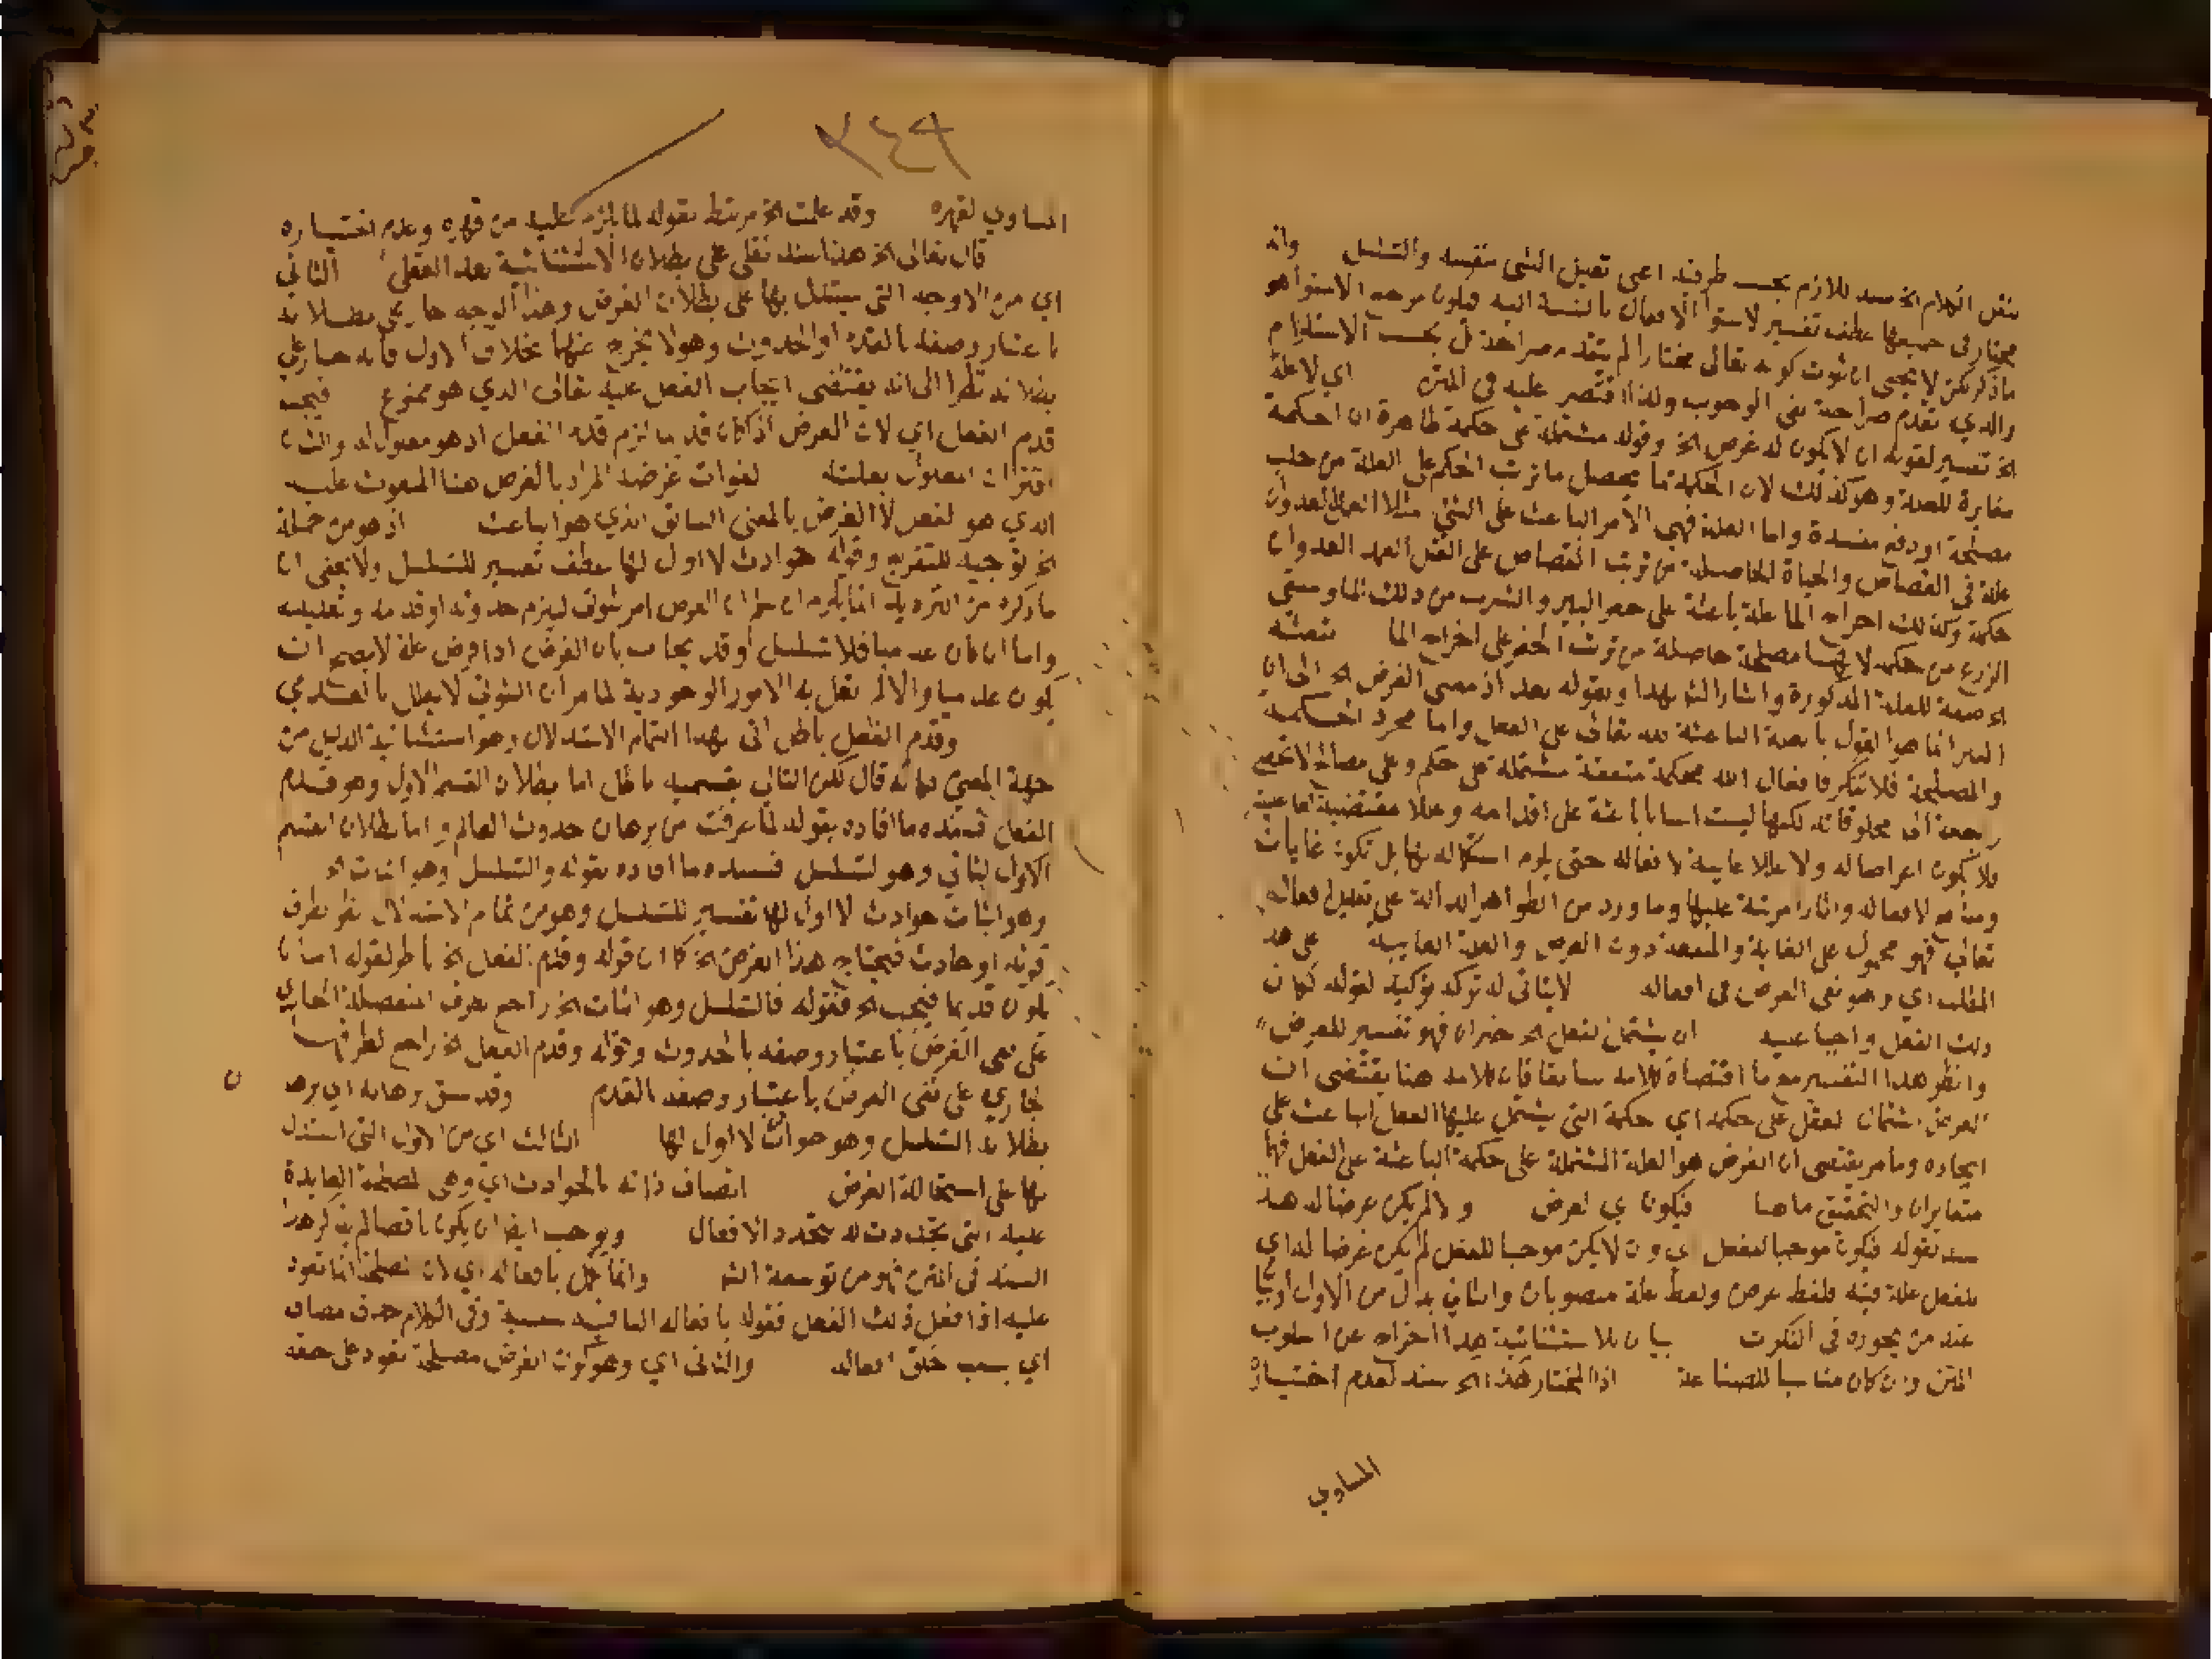 ننقل الكلام الخ سند للازم بحسب طرفيه اعني تعيين الشي بنفسه والتسلسل وانه
مختار في جميعها عطف تفسير لاستوا الافعال بالنسبة اليه فيكون مرجع الاستوا هو
ما ذكر لكن لا يخفى ان ثبوت كونه تعالى مختارا لم يتقدم صراحة بل بحسب الاستلزام
والذي تقدم صراحة نفي الوجوب ولذا اقتصر عليه في المتن اي لا علة
الخ تفسير لقوله ان لا يكون له غرض الخ وقوله مشتملة على حكمة ظاهرة ان الحكمة
مغايرة للعلة وهو كذلك لان الحكمة ما يحصل من ترتب الحكم على العلة من جلب
مصلحة او دفع مفسدة واما العلة فهي الامر الباعث على الشي مثلا القتل العدوان
علة في القصاص والحياة الحاصلة من ترتب القصاص على القتل العمد العدوان
حكمة وكذلك اخراج الما علة باعثة على حفر البير والشرب من ذلك الما وسقي
الزرع من حكمه لانها مصلحة حاصلة من ترتب الحفر على اخراج الما تبعثه
الخ صفة للعلة المذكورة واشار الشـ بهذا وبقوله بعد اذ معنى الغرض الخ الى ان
المضر انما هو القول بالعلة الباعثة لله تعالى على الفعل واما مجرد الحكمة
والمصلحة فلا تنكر فافعال الله محكمة متقنة مشتملة على حكم وعلى مصالح لا تحصى
راجعة الى مخلوقاته لكنها ليست اسبابا باعثة على اقدامه وعللا مقتضية لفاعليته
فلا تكون اغراضا له ولا عللا غايية لافعاله حتى يلزم استكماله بها بل تكون غايات
ومنافع لافعاله واثارا مرتبة عليها وما ورد من الظواهر الدالة على تعليل افعاله
تعالى فهو محمول على الغاية والمنفعة دون الغرض والعلة الغايية على هذا
المطلب اي وهو نفي الغرض في افعاله لا يتاتى له تركه توكيد لقوله كان
ذلك الفعل واجبا عليه ان يشتمل الفعل الخ خبر ان فهو تفسير للغرض
وانظر هذا التفسير مع ما اقتضاه كلامه سابقا فان كلامه هنا يقتضي ان
الغرض اشتمال الفعل على حكمة اي حكمة التي يشتمل عليها الفعل الباعث على
ايجاده وما مر يقتضي ان الغرض هو العلة المشتملة على حكمة الباعثة على الفعل فهما
متغايران والتحقيق ما هنا فيكون اي الغرض والا لم يكن غرضا له هذا
سند لقوله فيكون موجبا للفعل اي وان لا يكن موجبا للفعل لم يكن غرضا له اي
للفعل علة فيه فلفظ غرض ولفظ علة منصوبان والثاني بدل من الاول
عند من يجوزه في النكرات بيان للاستثنائية هذا اخراج عن اسلوب
المتن وان كان مناسبا للصناعة اذ المختار الخ سند لعدم اختياره
المساوي
٢٤٩
المساوي لقهره وقد علمت الخ مرتبط بقوله لما يلزم عليه من قهره وعدم اختياره
قال تعالى الخ هذا سند نقلي على بطلان الاستثنائية بعد العقلي الثاني
اي من الاوجه التي يستدل بها على بطلان الغرض وهذا الوجه جار على بطلانه
باعتبار وصفه بالقدم او الحدوث وهو لا يخرج عنهما بخلاف الاول فانه جار على
بطلانه نظرا الى انه يقتضي ايجاب الفعل عليه تعالى الذي هو ممنوع فيجب
قدم الفعل اي لان الغرض اذا كان قديما لزم قدم الفعل اذ هو معلول له والشان
اقتران المعلول بعلته لفوات غرضه المراد بالغرض هنا المبعوث عليه
الذي هو الفعل لا الغرض بالمعنى السابق الذي هو الباعث اذ هو من جملة
الخ توجيه للتفريع وقوله حوادث لا اول لها عطف تفسير للتسلسل ولا يخفى ان
ما ذكره من الترديد انما يلزم ان لو كان الغرض امر ثبوتي ليلزم حدوثه او قدمه وتعليله
واما ان كان عدميا فلا تسلسل وقد يجاب بان الغرض اذا فرض علة لا يصح ان
يكون عدميا والا لم تعلل به الامور الوجودية لما مر ان الثبوتي لا يعلل بالعدمي
وقدم الفعل باطل اتى بهذا لتمام الاستدلال وهو استثنائية الدليل من
جهة المعنى فكانه قال لكن التالي بقسميه باطل اما بطلان القسم الاول وهو قدم
الفعل فسنده ما افاده بقوله لما عرفت من برهان حدوث العالم واما بطلان القسم
الثاني وهو التسلسل فسنده ما افاده بقوله والتسلسل وهو اثبات الخ
وهو اثبات حوادث لا اول لها تفسير للتسلسل وهو من تمام الاستدلال
كونه او حادث فيحتاج هذا الغرض الخ كما ان قوله وقدم الفعل الخ ناظر لقوله اما ان
يكون قديما فيجب الخ فقوله فالتسلسل وهو اثبات الخ راجع لطرف المنفصلة الجاري
على نفي الغرض باعتبار وصفه بالحدوث وقوله وقدم الفعل الخ راجع لطرفها
الجاري على نفي الغرض باعتبار وصفه بالقدم وقد سبق برهانه اي برهان
بطلانه التسلسل وهو حوادث لا اول لها الثالث اي من الاوجه التي استدل
بها على استحالة الغرض اتصاف ذاته بالحوادث اي وهي المصلحة العايدة
عليه التي تجددت له بتجدد الافعال ويوجب ايضا ان يكون ناقصا لم يذكر هذا
السند في المتن فهو من توسعة الشـ وانما قال بافعاله اي لان المصلحة انما تعود
عليه اذا فعل ذلك الفعل فقوله بافعاله البا فيه سببية وفي الكلام حذف مضاف
اي بسبب خلق افعاله والثاني اي وهو كون الغرض مصلحة تعود على خلقه